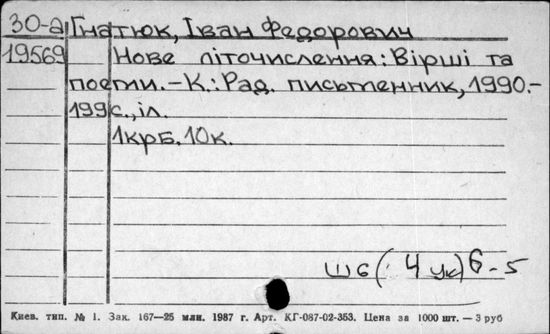 30-а Гнатюк, Іван Федорович
19569 Нове літочислення: Вірші та
поеми.-К.: Рад. письменник, 1990.-
199с., іл.
1крб. 10к.
Ш6(4Ук)6-5
Киев. тип. № 1. Зак. 167—25 млн. 1987 г. Арт. КГ-087-02-353. Цена за 1000 шт. — 3 руб